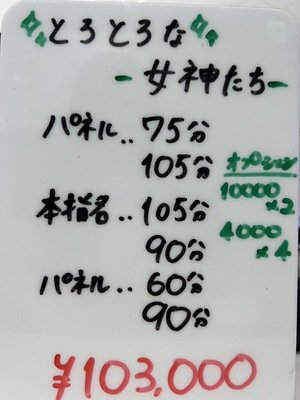 とろとろな
-女神たち-
パネル‥75分
105分
オプション
10000
×2
本指名‥105分
4000
×4
90分
パネル‥60分
90分
¥103,000